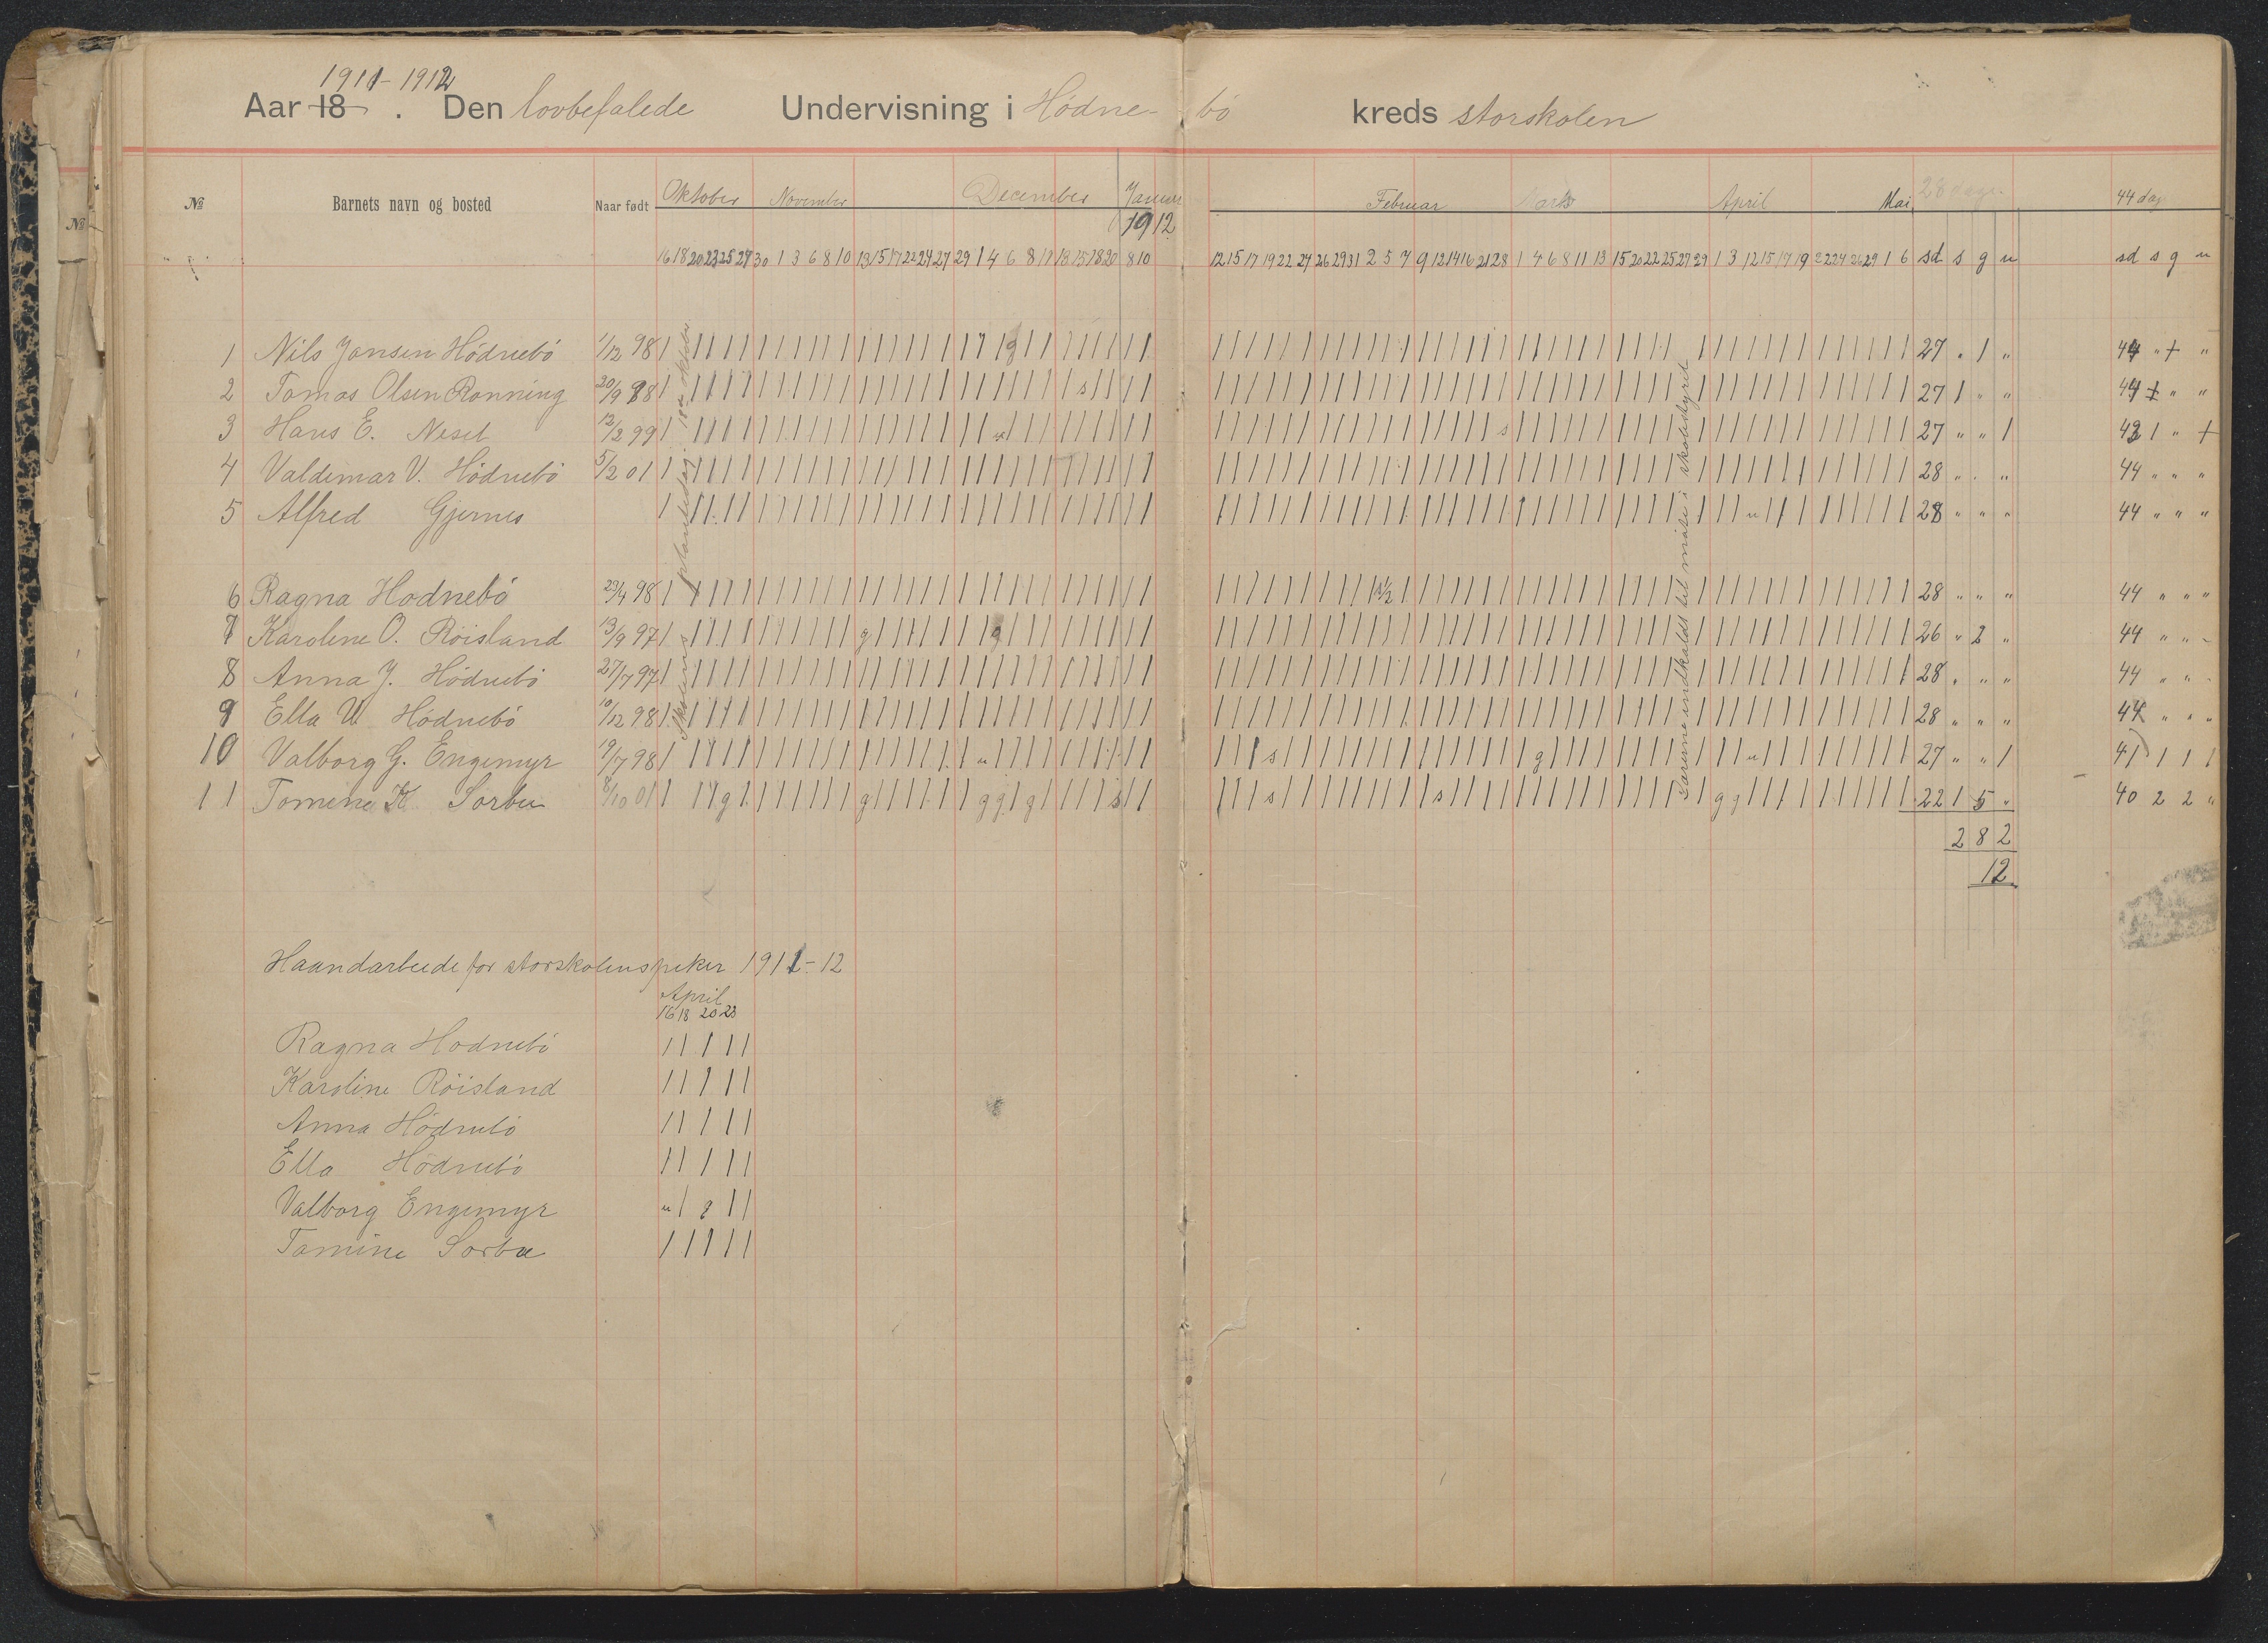 1911-1912
Aar 18 . Den lovbefalede Undervisning i Hödne- bö kreds storskolen
№ Barnets navn og bosted Naar født Oktober November December Januar Februar Marts April Mai 28 dage 44 dag
1912
16 18 20 23 25 27 30 1 3 6 8 10 13 15 17 22 24 27 29 1 4 6 8 11 13 15 18 20 8 10 12 15 17 19 22 24 26 29 31 2 5 7 9 12 14 16 21 28 1 4 6 8 11 13 15 20 22 25 27 29 1 3 12 15 17 19 22 24 26 29 1 6 sd s g u sd s g u
1 Nils Jansen Hödnebö 1/12 98 27 " 1 " 44 " "
2 Tomas Olsen Rönning 20/9 98 27 1 " " 44 " "
3 Hans E. Neset 12/2 99 27 " " 1 43 1 "
4 Valdemar V. Hödnebö 5/2 01 28 " " " 44 " " "
5 Alfred Gjernes 28 " " " 44 " " "
6 Ragna Hodnebö 29/4 98 28 " " " 44 " " "
7 Karoline O. Röisland 13/9 97 26 " 2 " 44 " " "
8 Anna J. Hödnebö 27/7 97 28 " " " 44 " " "
9 Ella V. Hödnebö 10/12 98 28 " " " 44 " " "
10 Valborg G. Engemyr 19/7 98 27 " " 1 41 1 1 1
11 Tomine K. Sorbu 8/10 01 22 1 5 " 40 2 2 "
Skolens plantedag 18de oktober
Barnene indkaldt til møde i skolestyret
2 8 2
12
Haandarbeide for storskolens piker 1911-12
April
16 18 20 23
Ragna Hodnebö | | | | |
Karoline Röisland | | | | |
Anna Hödnebö | | | | |
Ella Hödnebö | | | | |
Valborg Engemyr u | g | |
Tomine Sorbu | | | | |